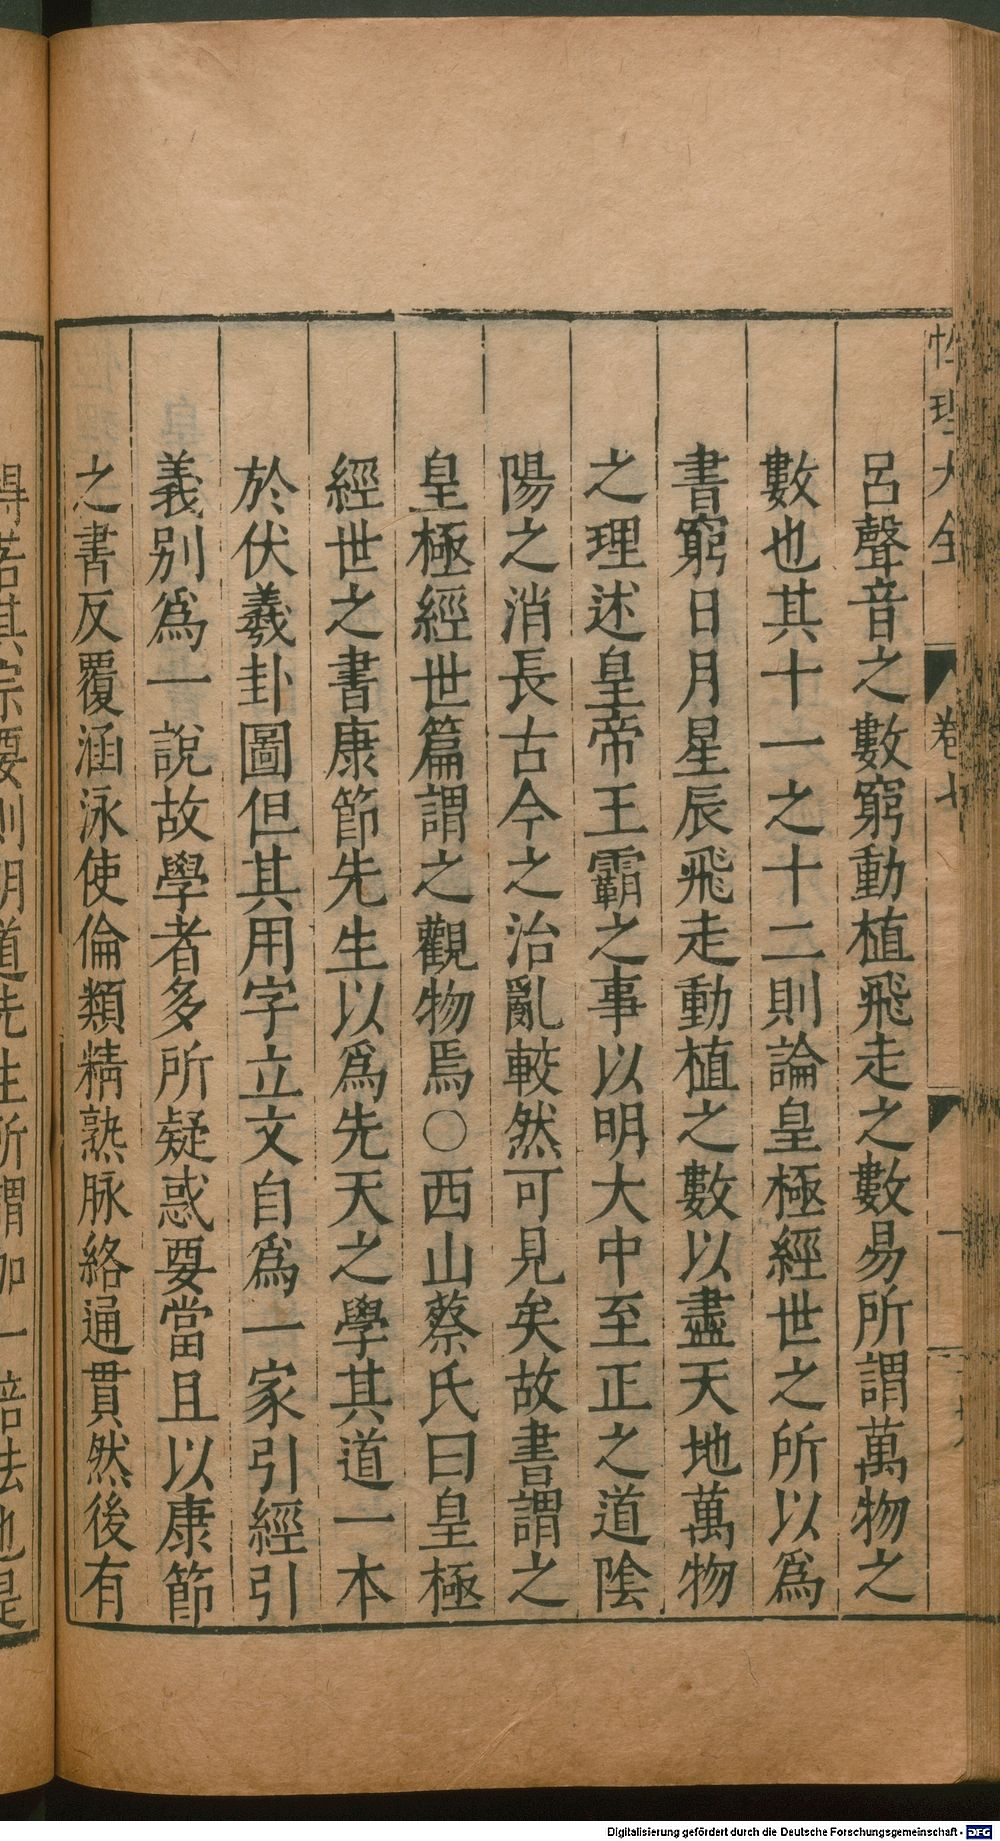 性理大全 卷七
呂聲音之數窮動植飛走之數易所謂萬物之
數也其十一之十二則論皇極經世之所以爲
書窮日月星辰飛走動植之數以盡天地萬物
之理述皇帝王霸之事以明大中至正之道隂
陽之消長古今之治亂較然可見矣故書謂之
皇極經世篇謂之觀物焉○西山蔡氏曰皇極
經世之書康節先生以爲先天之學其道一本
於伏羲卦圖但其用字立文自爲一家引經引
義别爲一說故學者多所疑惑要當且以康節
之書反覆涵泳使倫類精熟脉絡通貫然後有
得若其宗要則明道先生所謂加一倍法也是
Digitalisierung gefördert durch die Deutsche Forschungsgemeinschaft - DFG